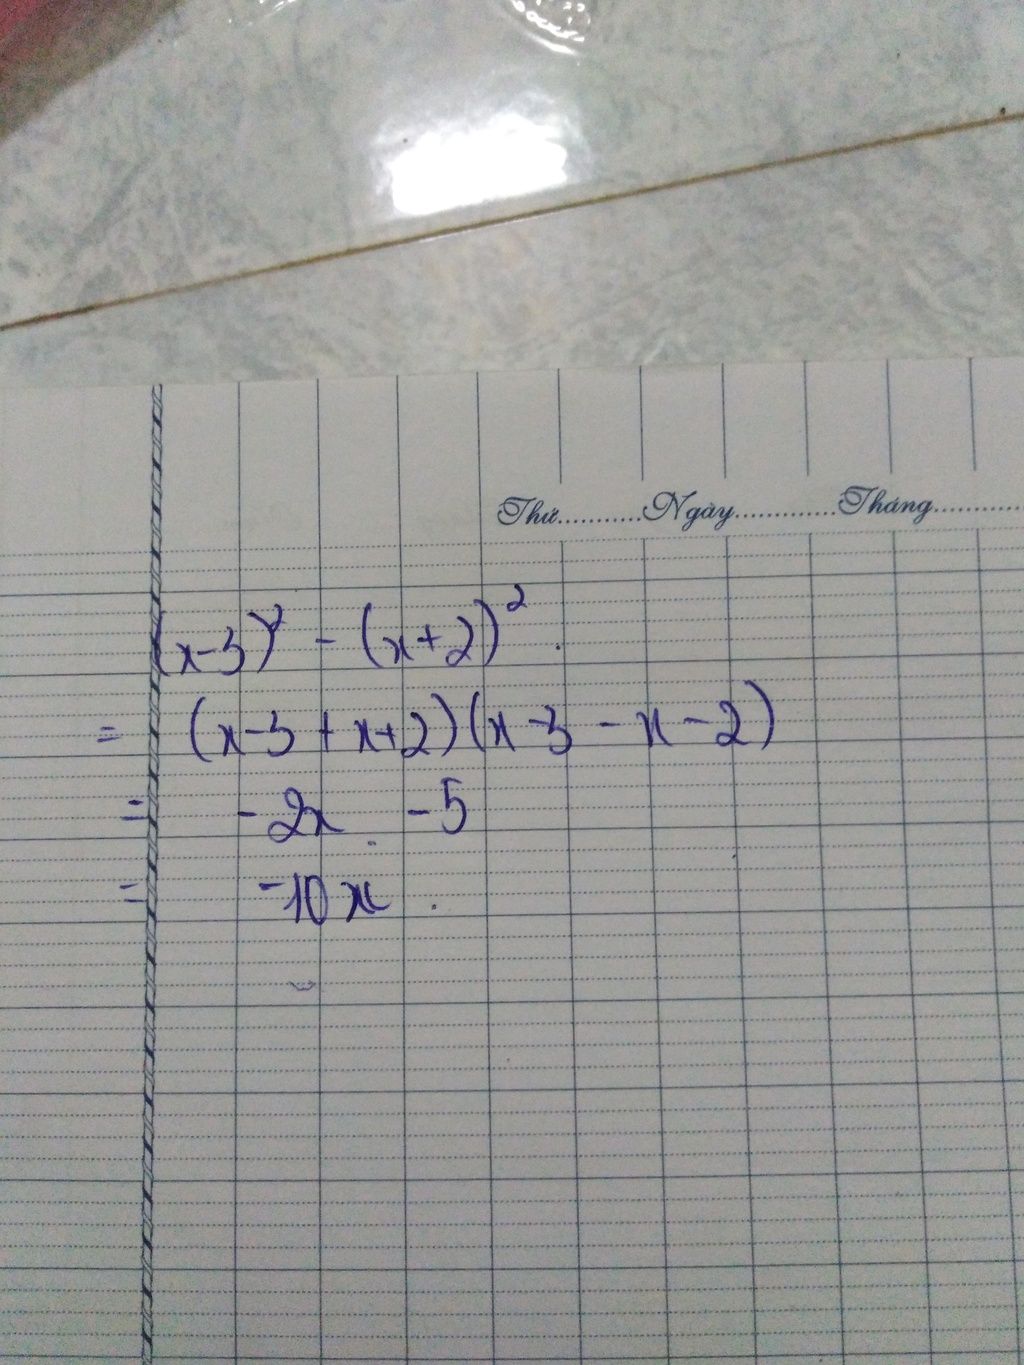 Thứ...........Ngày.............Tháng............
(x-3)² - (x+2)².
= (x-3+x+2)(x-3-x-2)
= -2x . -5
= -10x.